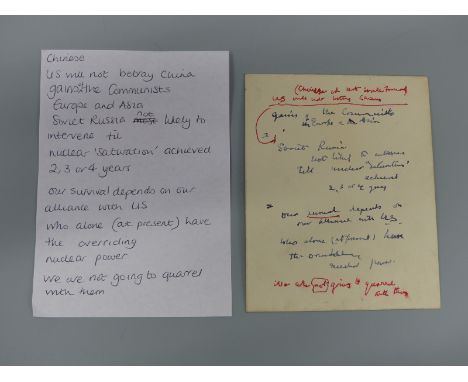 Chinese
US will not betray China
gains the Communists
Europe and Asia
Soviet Russia not likely to
intervene til
nuclear 'saturation' achieved
2, 3 or 4 years
Our survival depends on our
alliance with US
who alone (at present) have
the overriding
nuclear power
We are not going to quarrel
with them
US will not betray China
gains the Communists
in Europe Asia
Soviet Russia
not likely to
till nuclear 'saturation'
achieved
2, 3 or 4 years
Our survival depends on
our alliance with US.
who alone (at present) have
the overriding
nuclear power.
We are not going to quarrel
with them